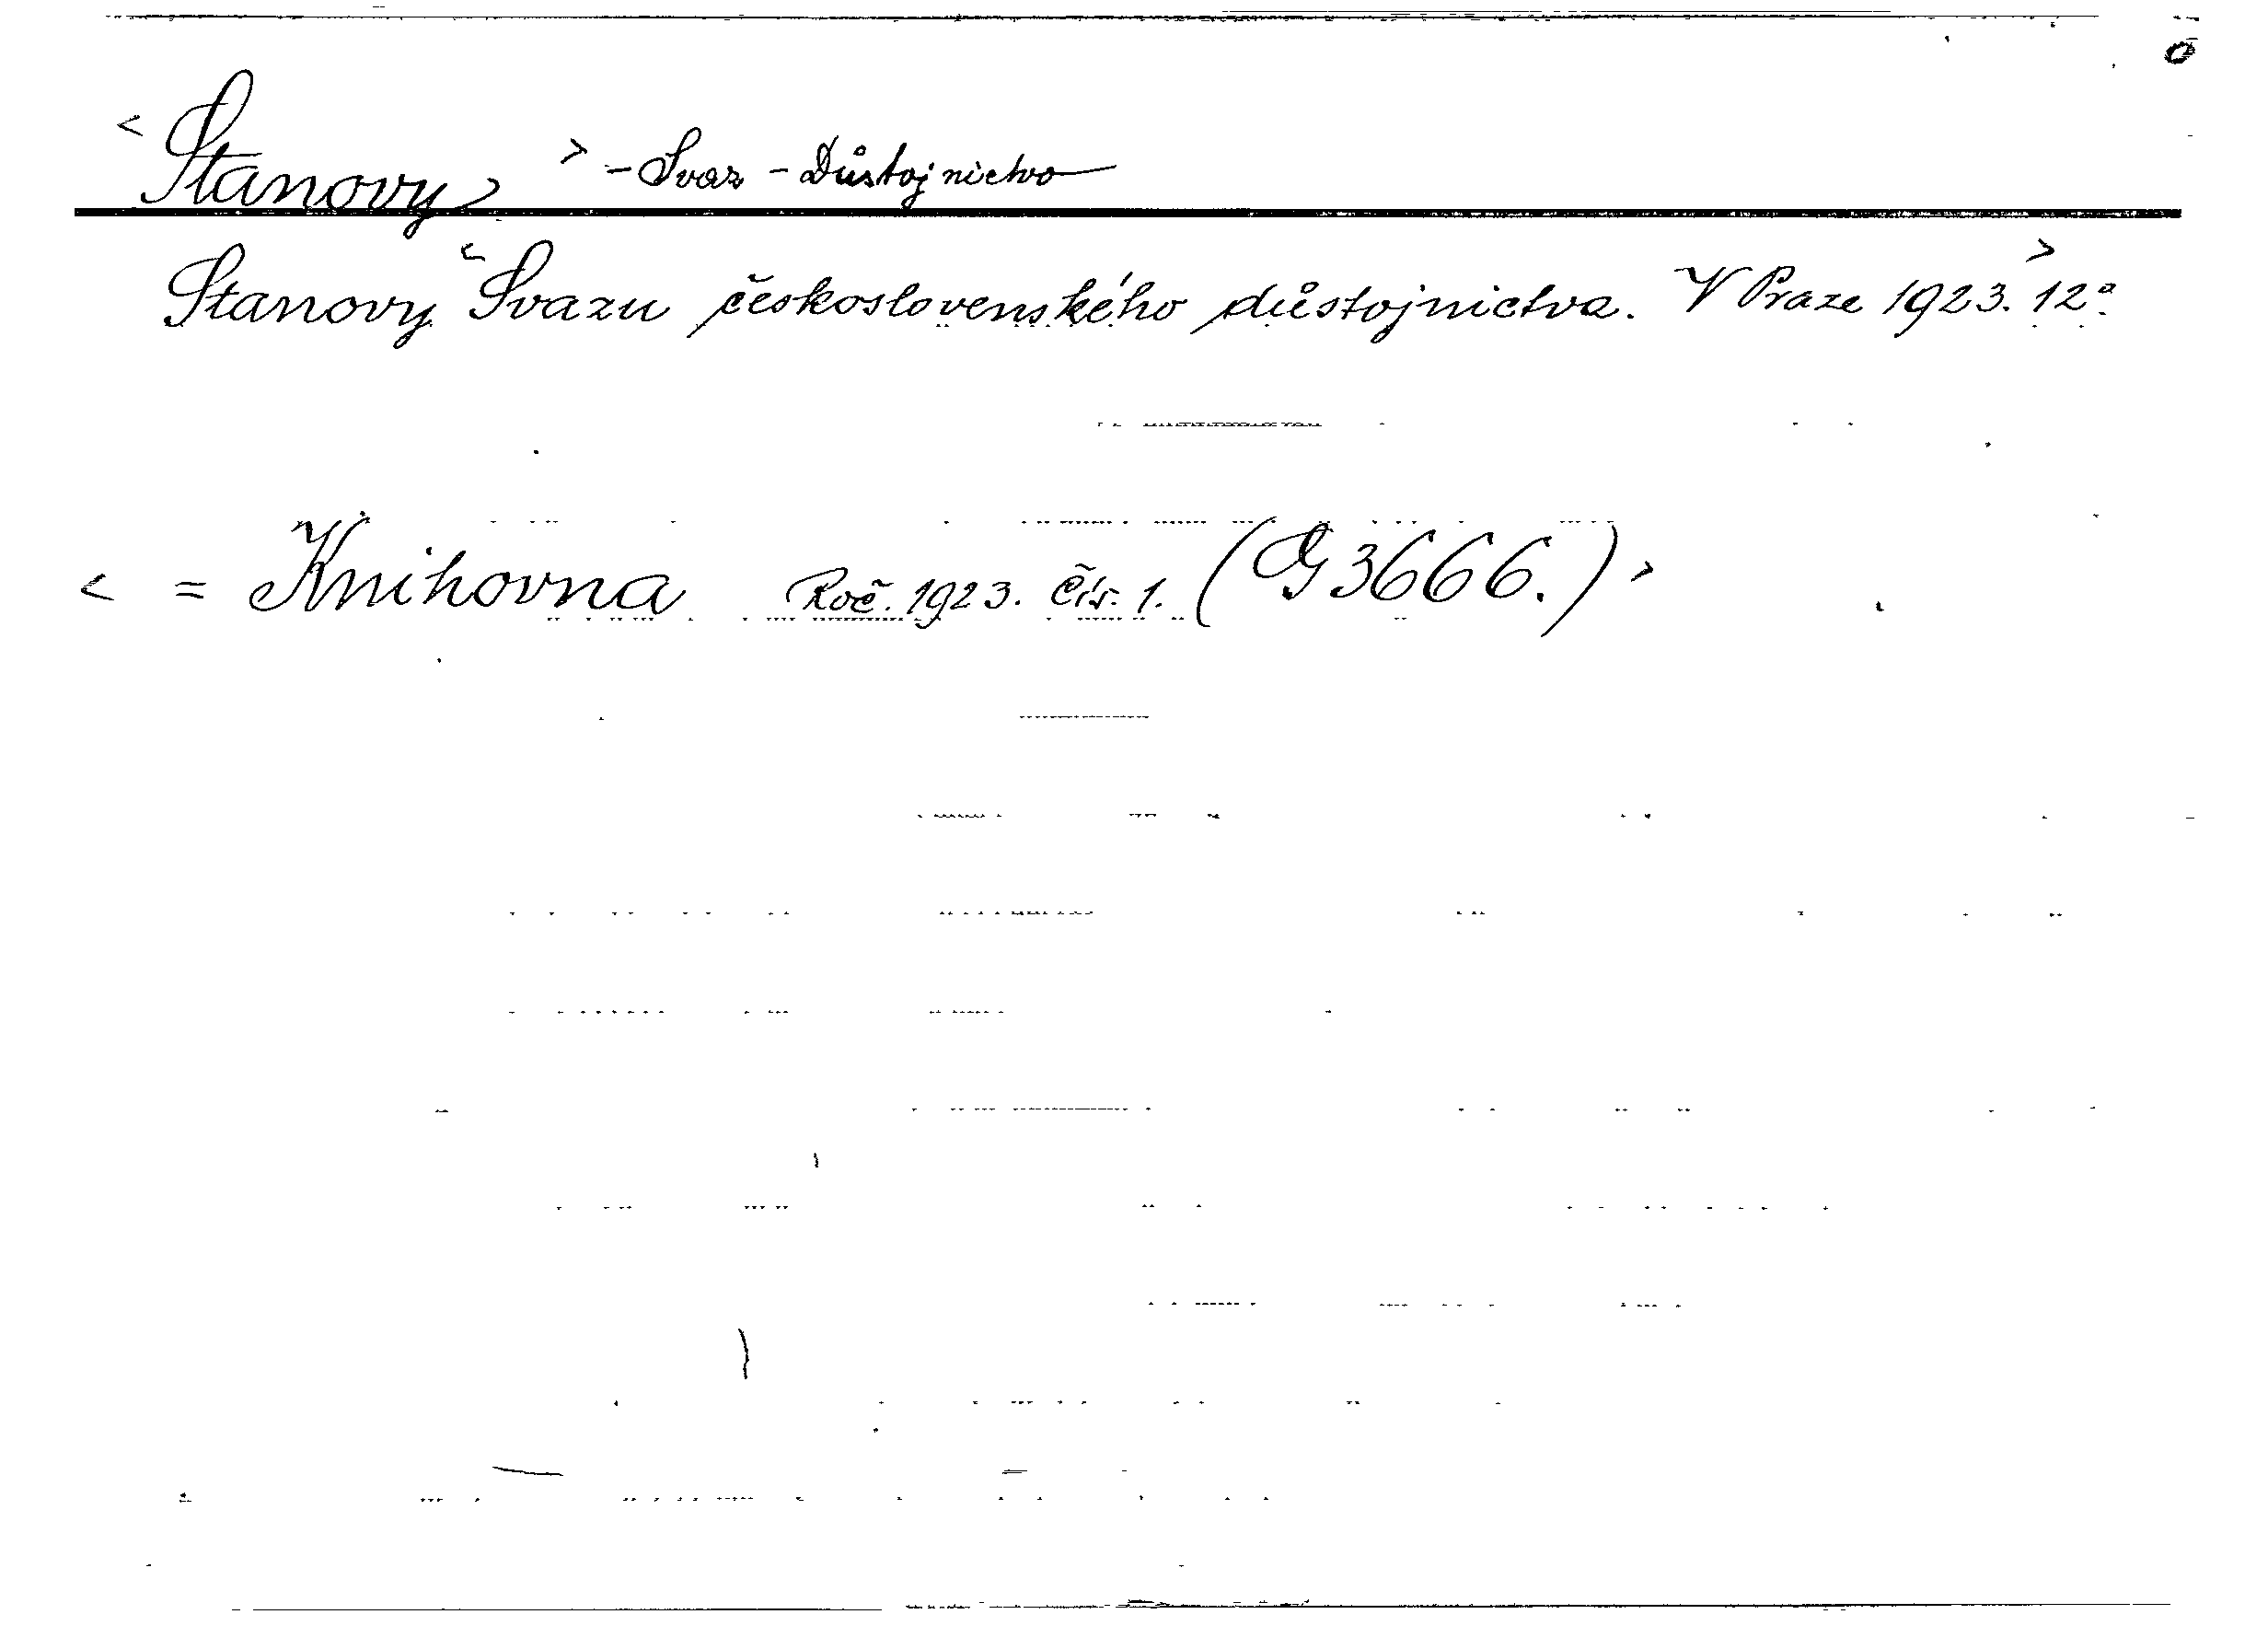 < Stanovy > - Svaz - Důstojnictvo
Stanovy < Svazu československého důstojnictva. V Praze 1923. > 12°.
< = Knihovna Roč. 1923. Čís. 1. (G 3666.) >